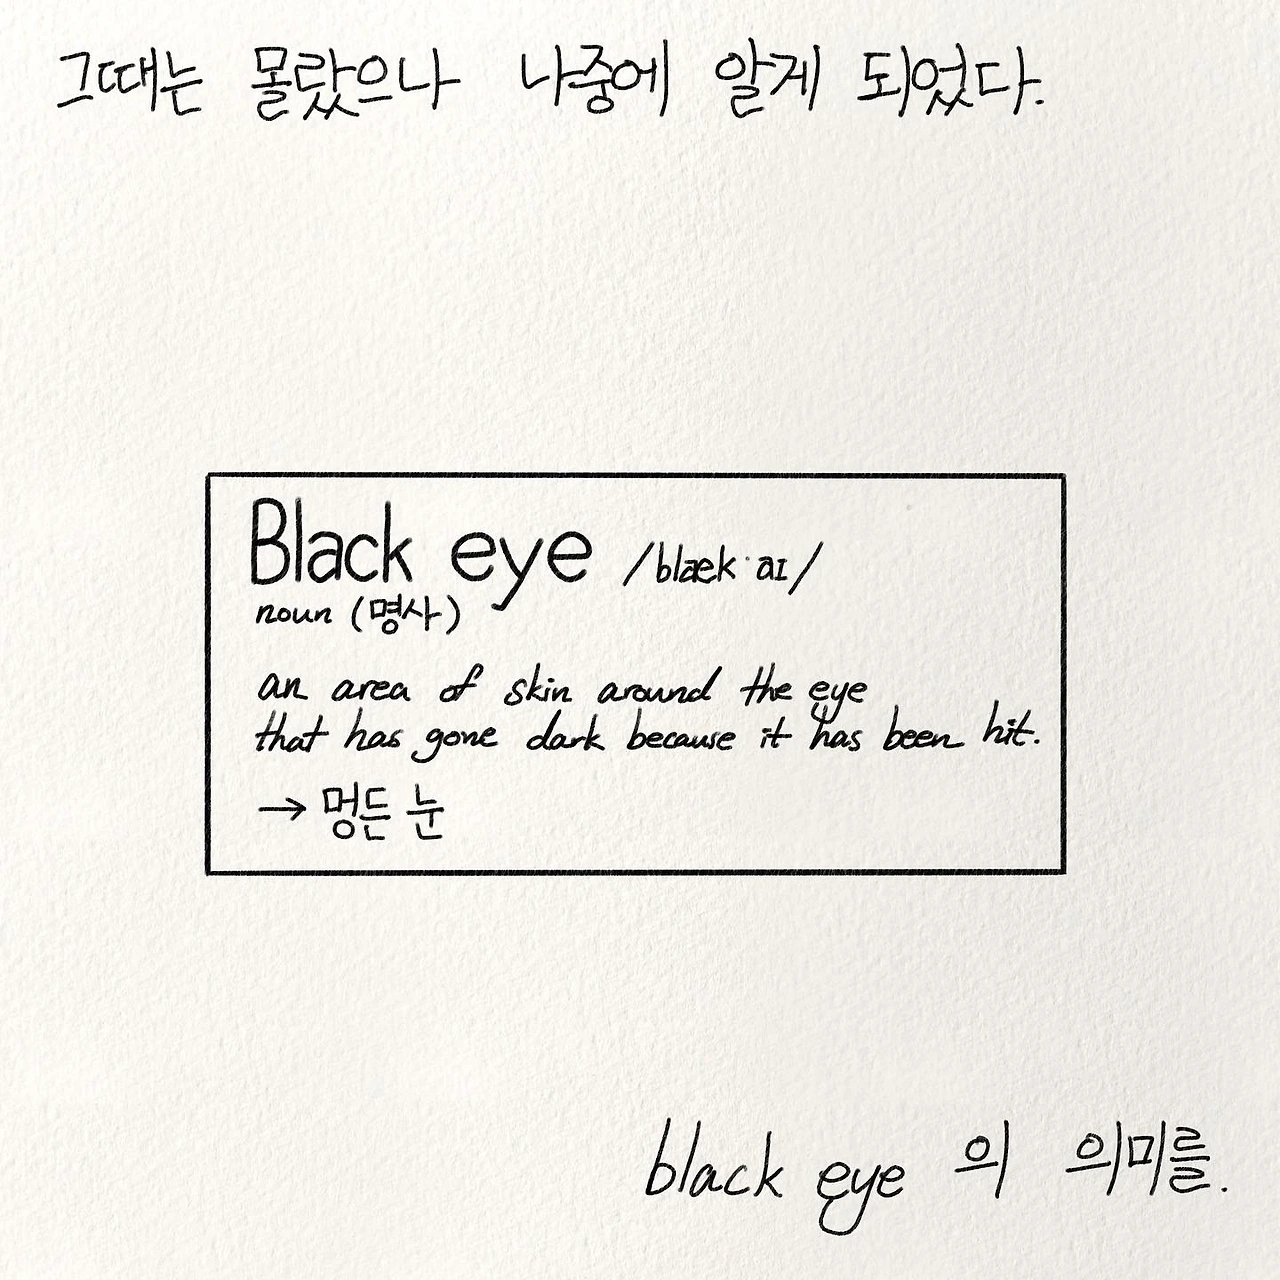 그때는 몰랐으나 나중에 알게 되었다.
Black eye /blæk·aɪ/
noun (명사)
an area of skin around the eye
that has gone dark because it has been hit.
→ 멍든 눈
black eye 의 의미를.